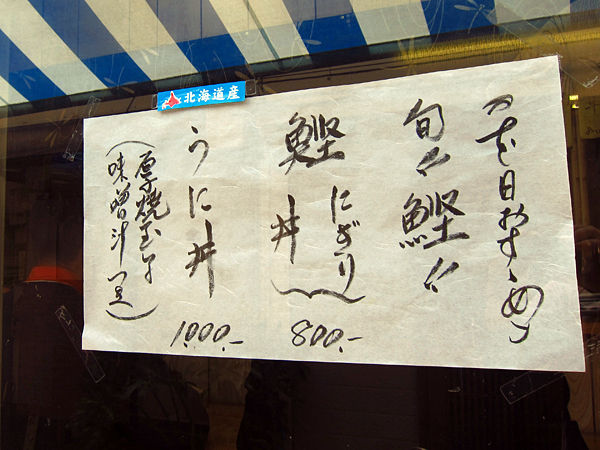 北海道産
本日おすゝめ
旬〃鰹〃
鰹 にぎり 丼 800.-
うに丼 1,000.-
(厚焼玉子
味噌汁 付)